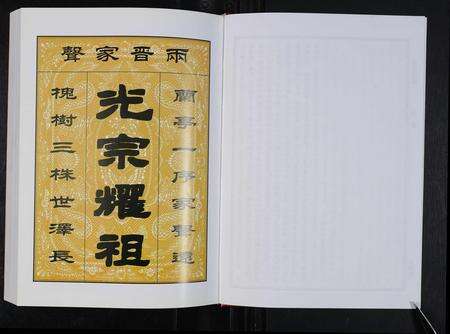 兩晉家聲
蘭亭一序家聲遠
光宗耀祖
槐樹三株世澤長